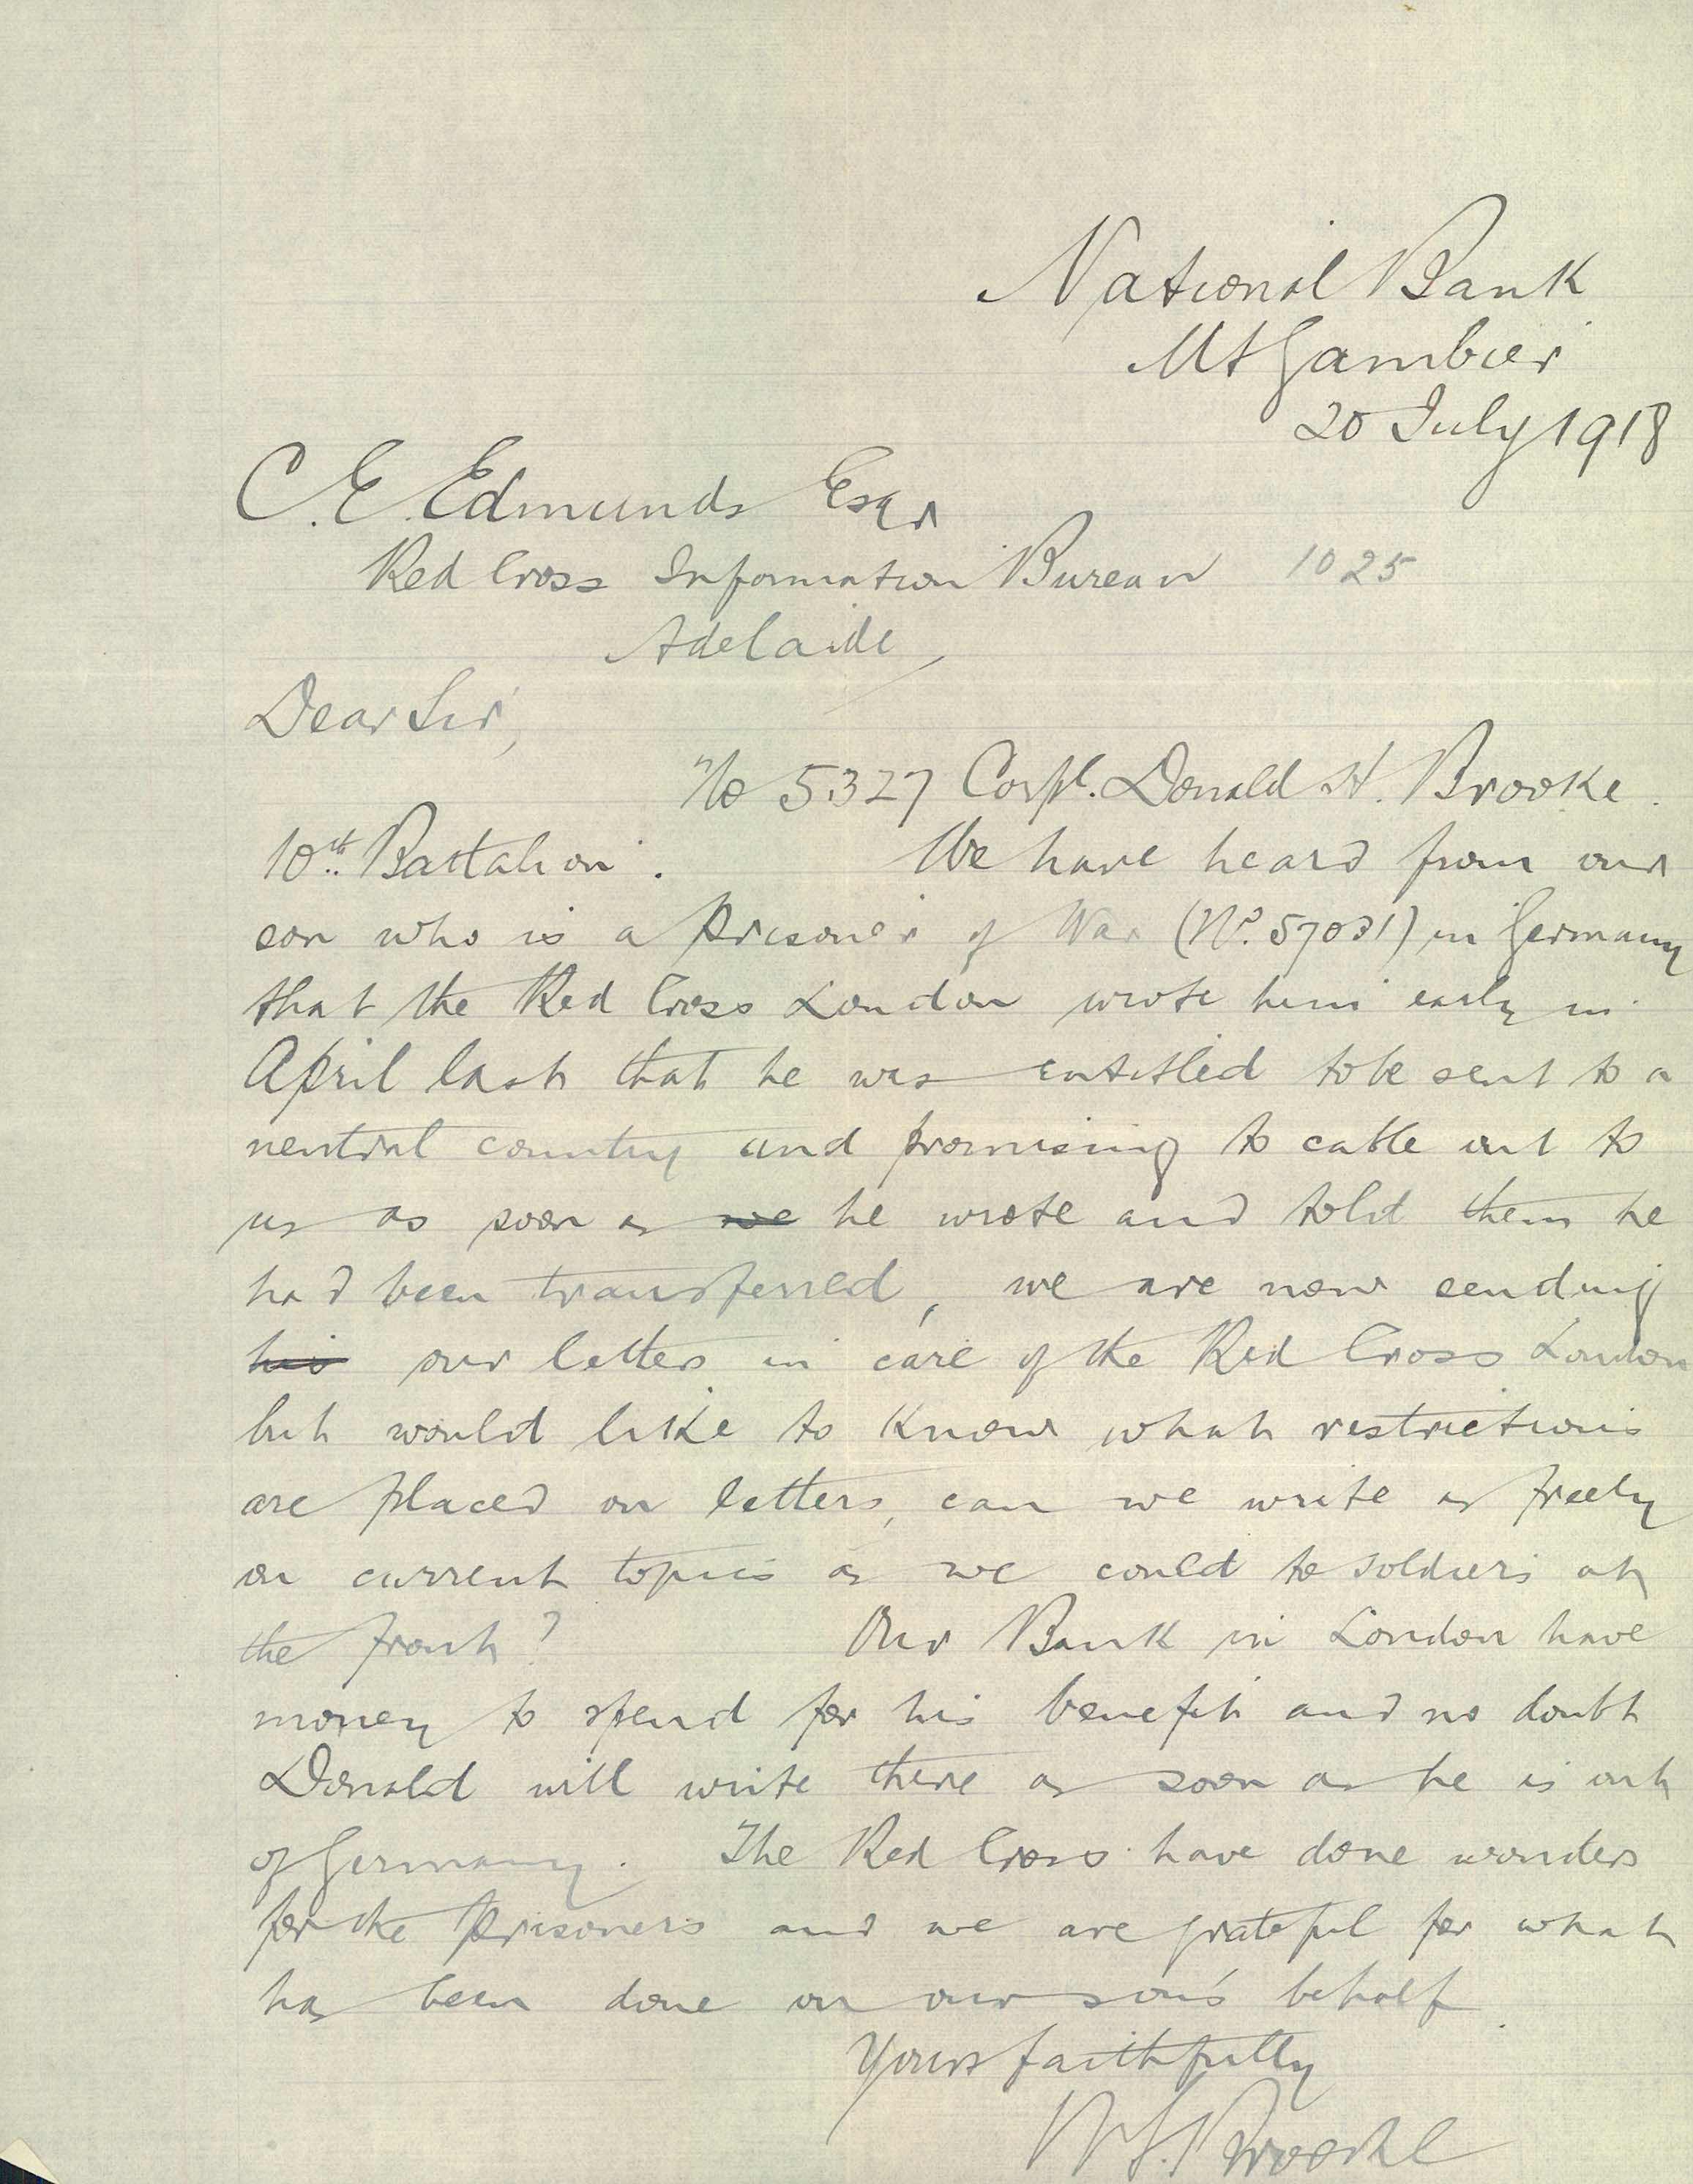 National Bank
Mt Gambier
20 July 1918
C. E. Edmunds Esqr
Red Cross Information Bureau 1025
Adelaide,
Dear Sir,
No 5327 Corpl. Donald H. Brooke.
10th Battalion. We have heard from our
son who is a prisoner of War (No. 57031) in Germany
that the Red Cross London wrote him early in
April last that he was entitled to be sent to a
neutral country and promising to cable out to
us as soon as we he wrote and told them he
had been transferred, we are now sending
his our letters in care of the Red Cross London
but would like to know what restrictions
are placed on letters, can we write as freely
on current topics as we could to soldiers at
the front? Our Bank in London have
money to spend for his benefit and no doubt
Donald will write there as soon as he is out
of Germany. The Red Cross have done wonders
for the prisoners and we are grateful for what
has been done on our son's behalf
Yours faithfully
Brooke